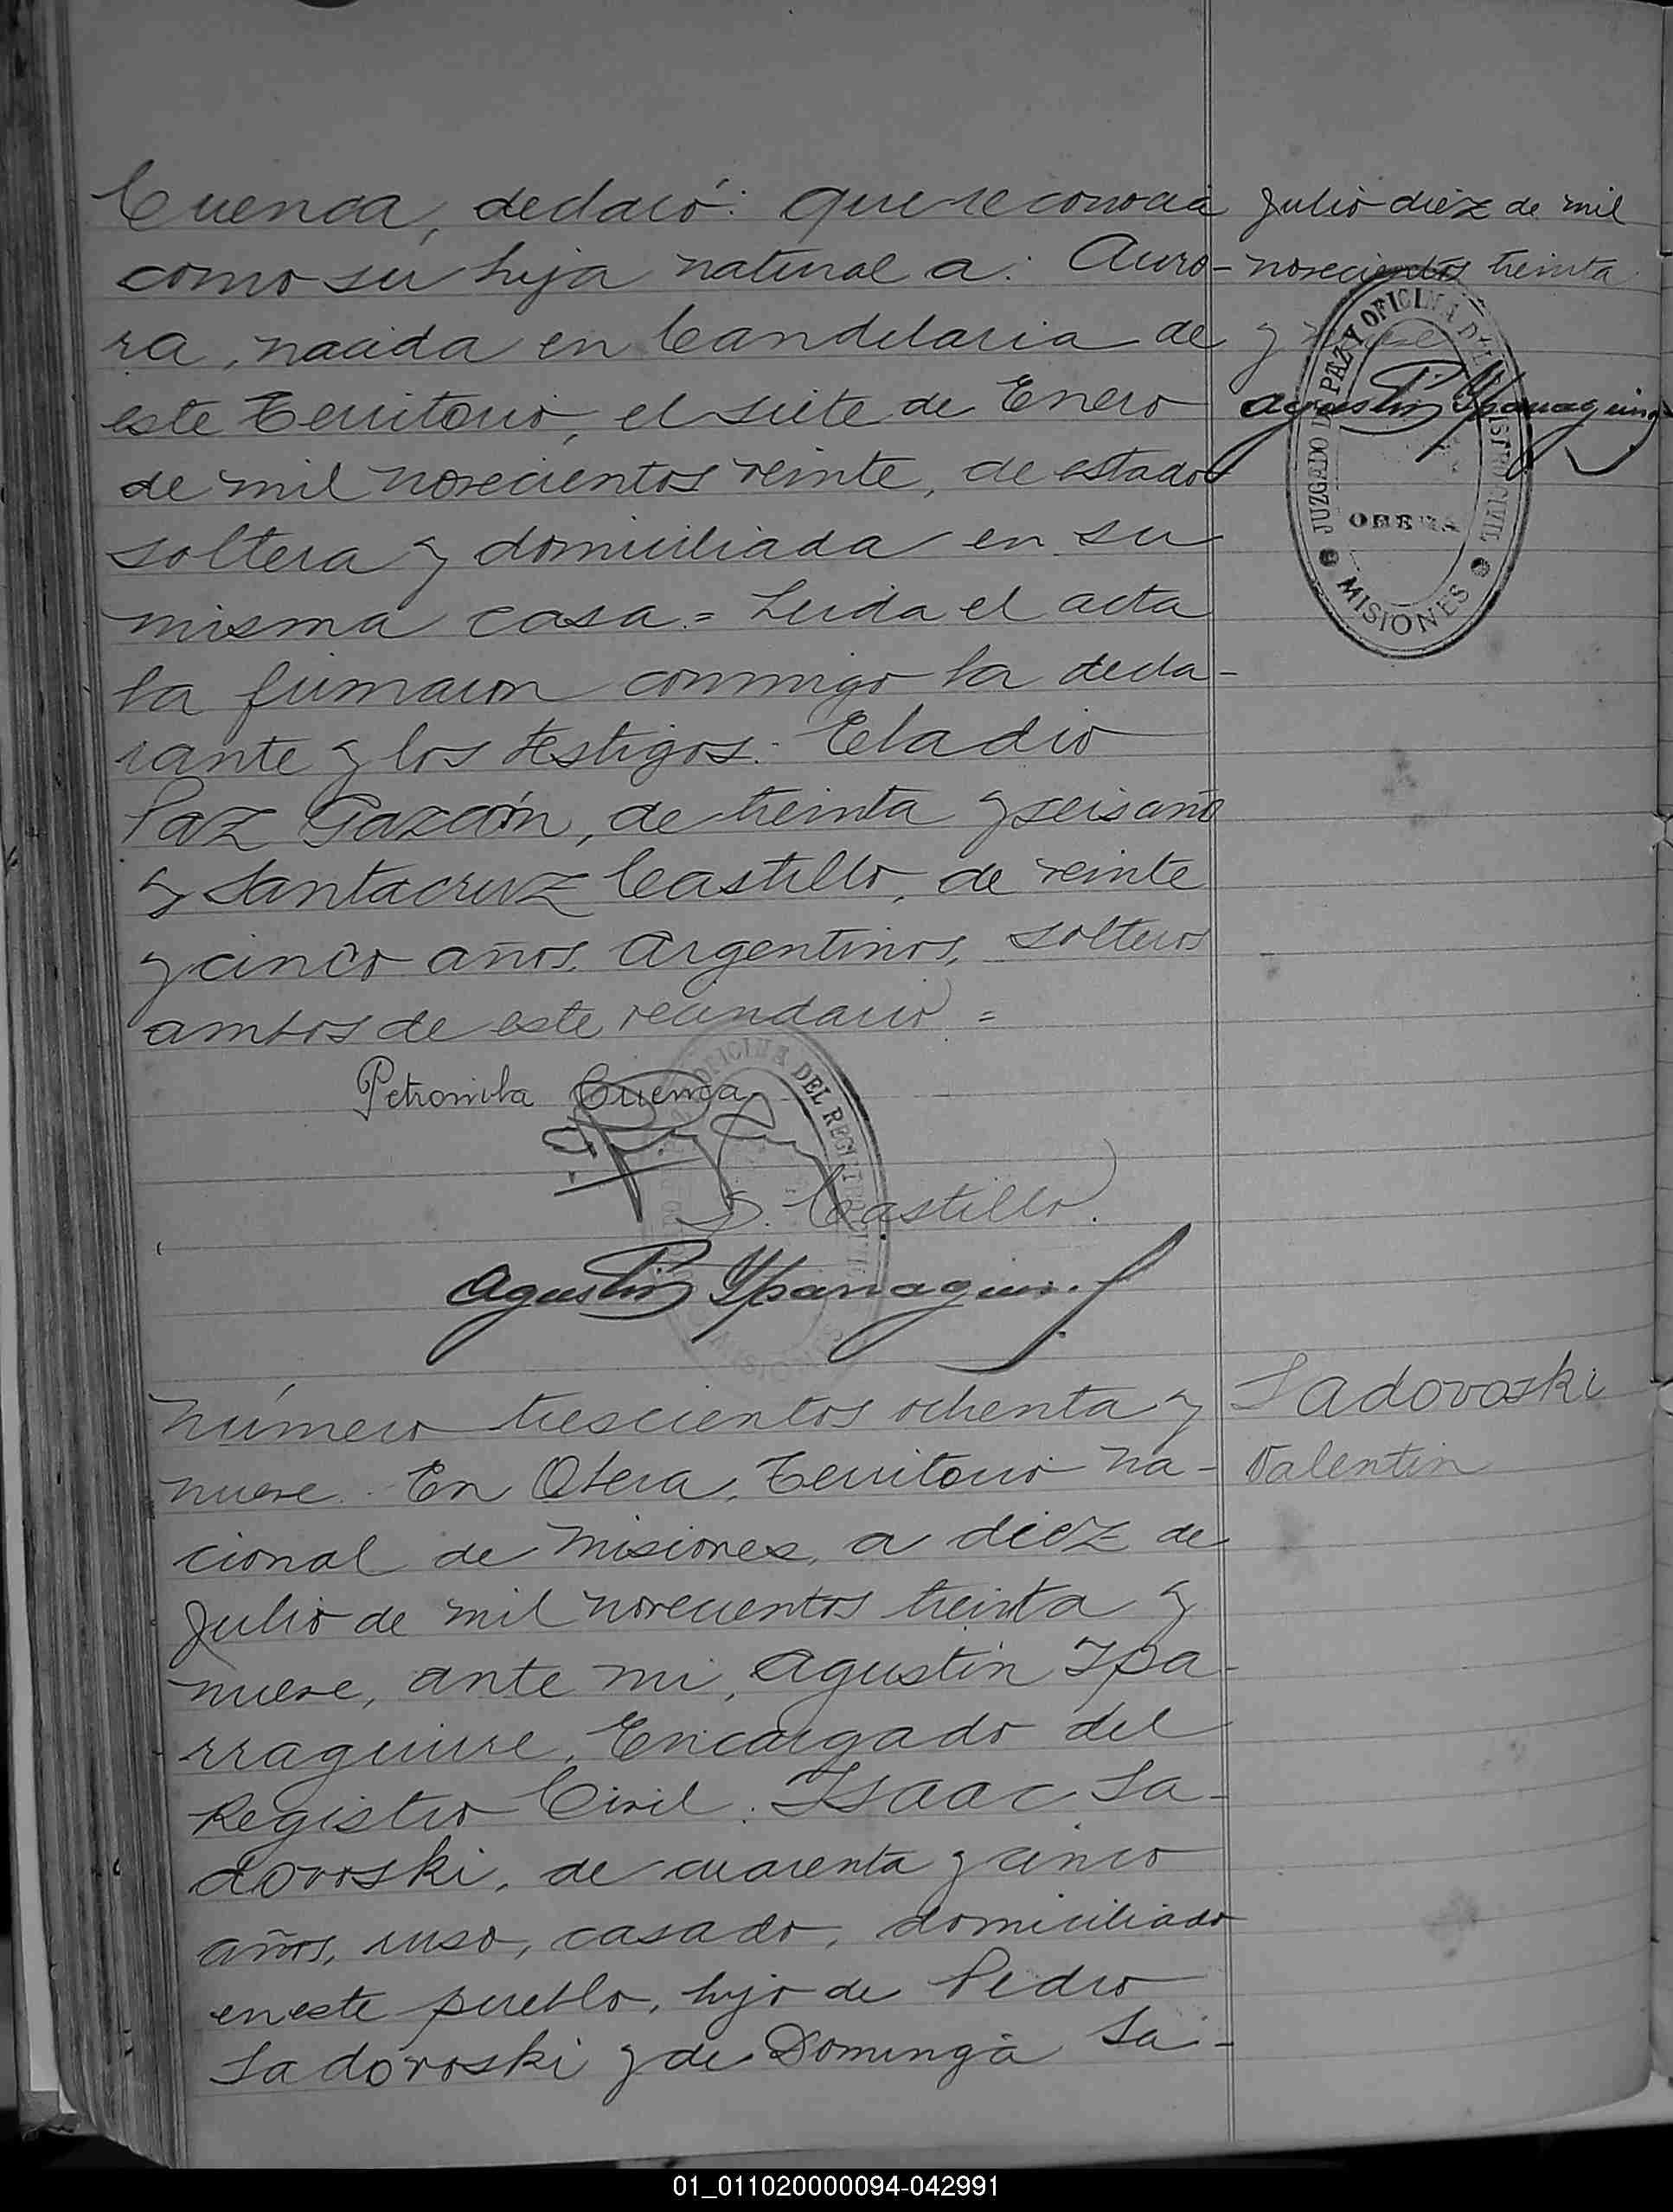 Cuenca, declaró: que reconocía
como su hija natural a: Auro-
ra, nacida en Candelaria de
este Territorio, el siete de Enero
de mil novecientos veinte, de estado
soltera y domiciliada en su
misma casa.= Leida el acta
la firmaron conmigo la decla-
rante y los testigos: Eladio
Paz Gazcón, de treinta y seis año
y Santacruz Castillo, de veinte
y cinco años, Argentinos, solteros
ambos de este vecindario =
Petronila Cuenca
S. Castillo.
Agustín Yparraguirre
Julio diez de mil
novecientos treinta
y
Agustín Yparraguirre
JUZGADO DE PAZ Y OFICINA DEL REGISTRO CIVIL
OBERA
MISIONES
OFICINA DEL REGISTRO CIVIL
MISIONES
Número trescientos ochenta y
nueve. En Obera, Territorio Na-
cional de Misiones, a diez de
Julio de mil novecientos treinta y
nueve, ante mi, Agustín Ipa-
rraguirre, Encargado del
Registro Civil: Isaac Sa-
dovoski, de cuarenta y cinco
años, ruso, casado, domiciliado
en este pueblo, hijo de Pedro
Sadovoski y de Dominga Sa-
Sadovoski
Valentin
01_011020000094-042991